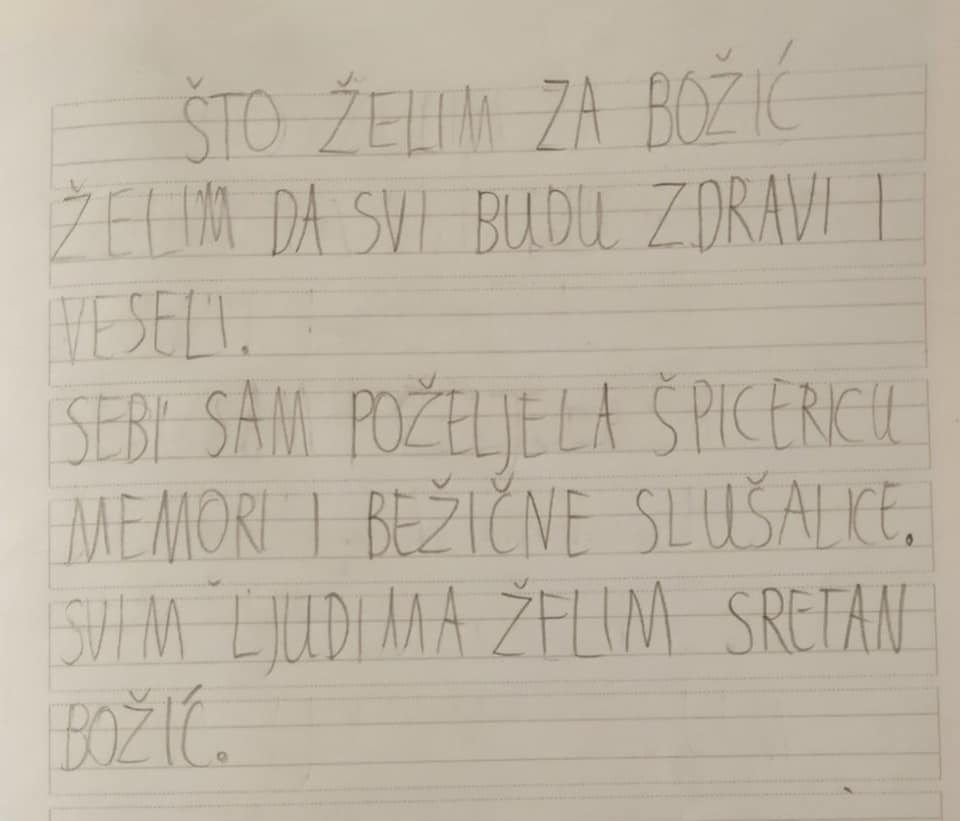 ŠTO ŽELIM ZA BOŽIĆ
ŽELIM DA SVI BUDU ZDRAVI I
VESELI.
SEBI SAM POŽELJELA ŠPICERICU
MEMORI I BEŽIČNE SLUŠALICE.
SVIM LJUDIMA ŽELIM SRETAN
BOŽIĆ.